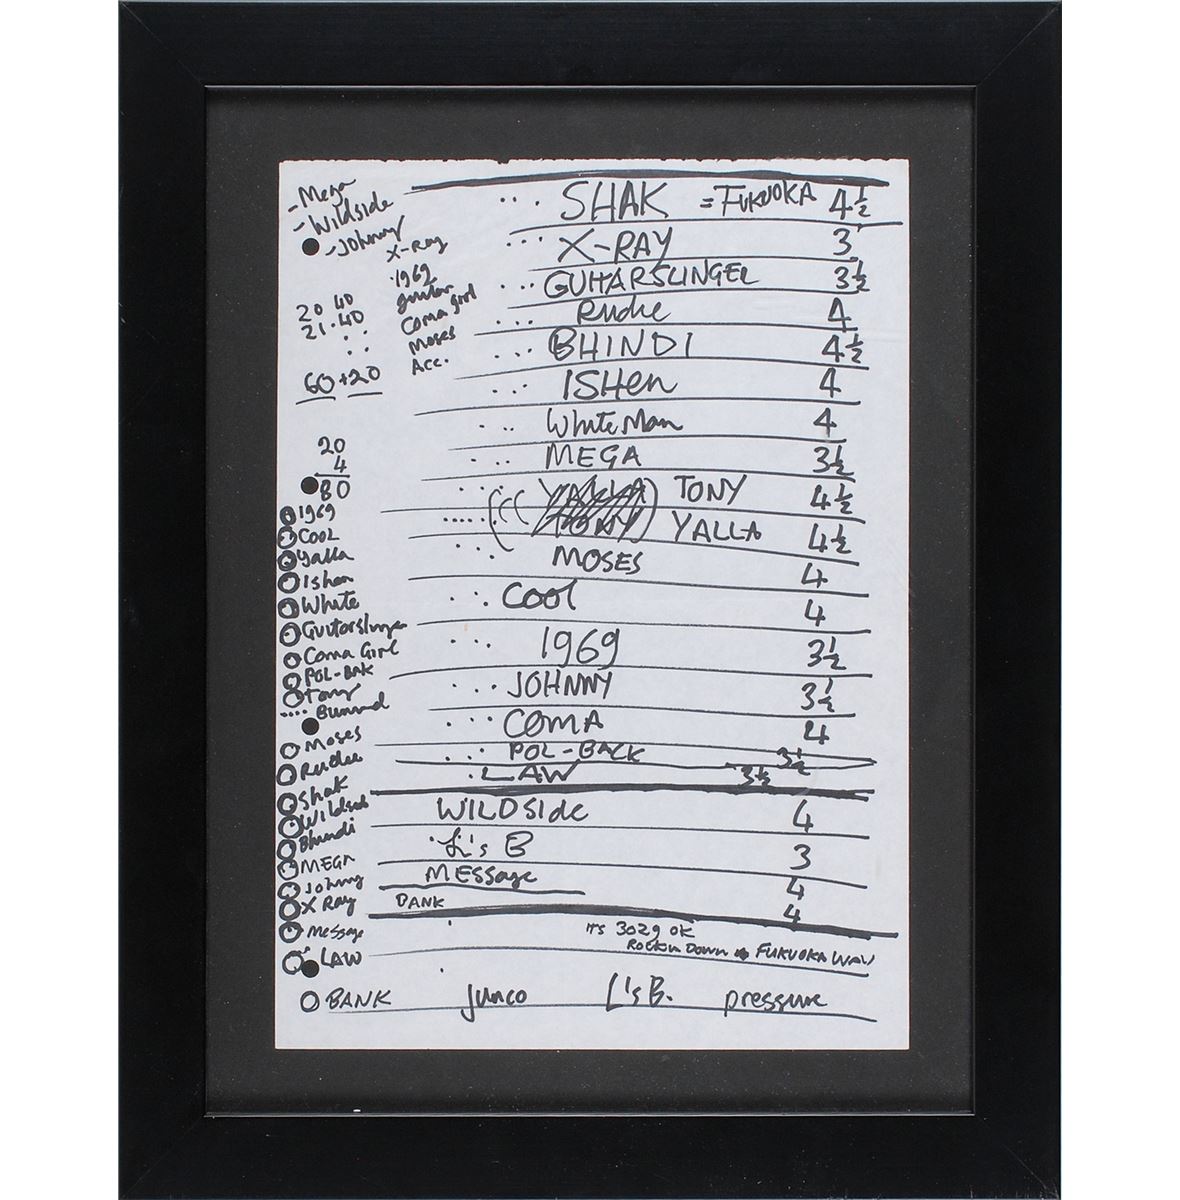 - Mega
- Wildside
- Johnny
X-Ray
1969
guitar
Coma girl
Moses
Acc.
20 40
21.40
60+20
20
4
80
1969
COOL
Yalla
Ishen
White
Guitarslinger
Coma Girl
POL-BAK
Tony
.... Burned
Moses
Rudie
Shak
Wildside
Bhindi
MEGA
Johnny
X Ray
message
LAW
BANK junco L's B. pressure
... SHAK = FUKUOKA 4½
... X-RAY 3
... GUITARSLINGER 3½
... Rudie 4
... BHINDI 4½
... ISHen 4
... White Man 4
... MEGA 3½
... YALLA TONY 4½
..... (TONY) YALLA 4½
... MOSES 4
... COOL 4
... 1969 3½
... JOHNNY 3½
... COMA 4
... POL-BACK 3½
: LAW 3½
WILDSide 4
L's B 3
MESSage 4
BANK 4
it's 3029 OK
Rockin Down FUKUOKA WAY